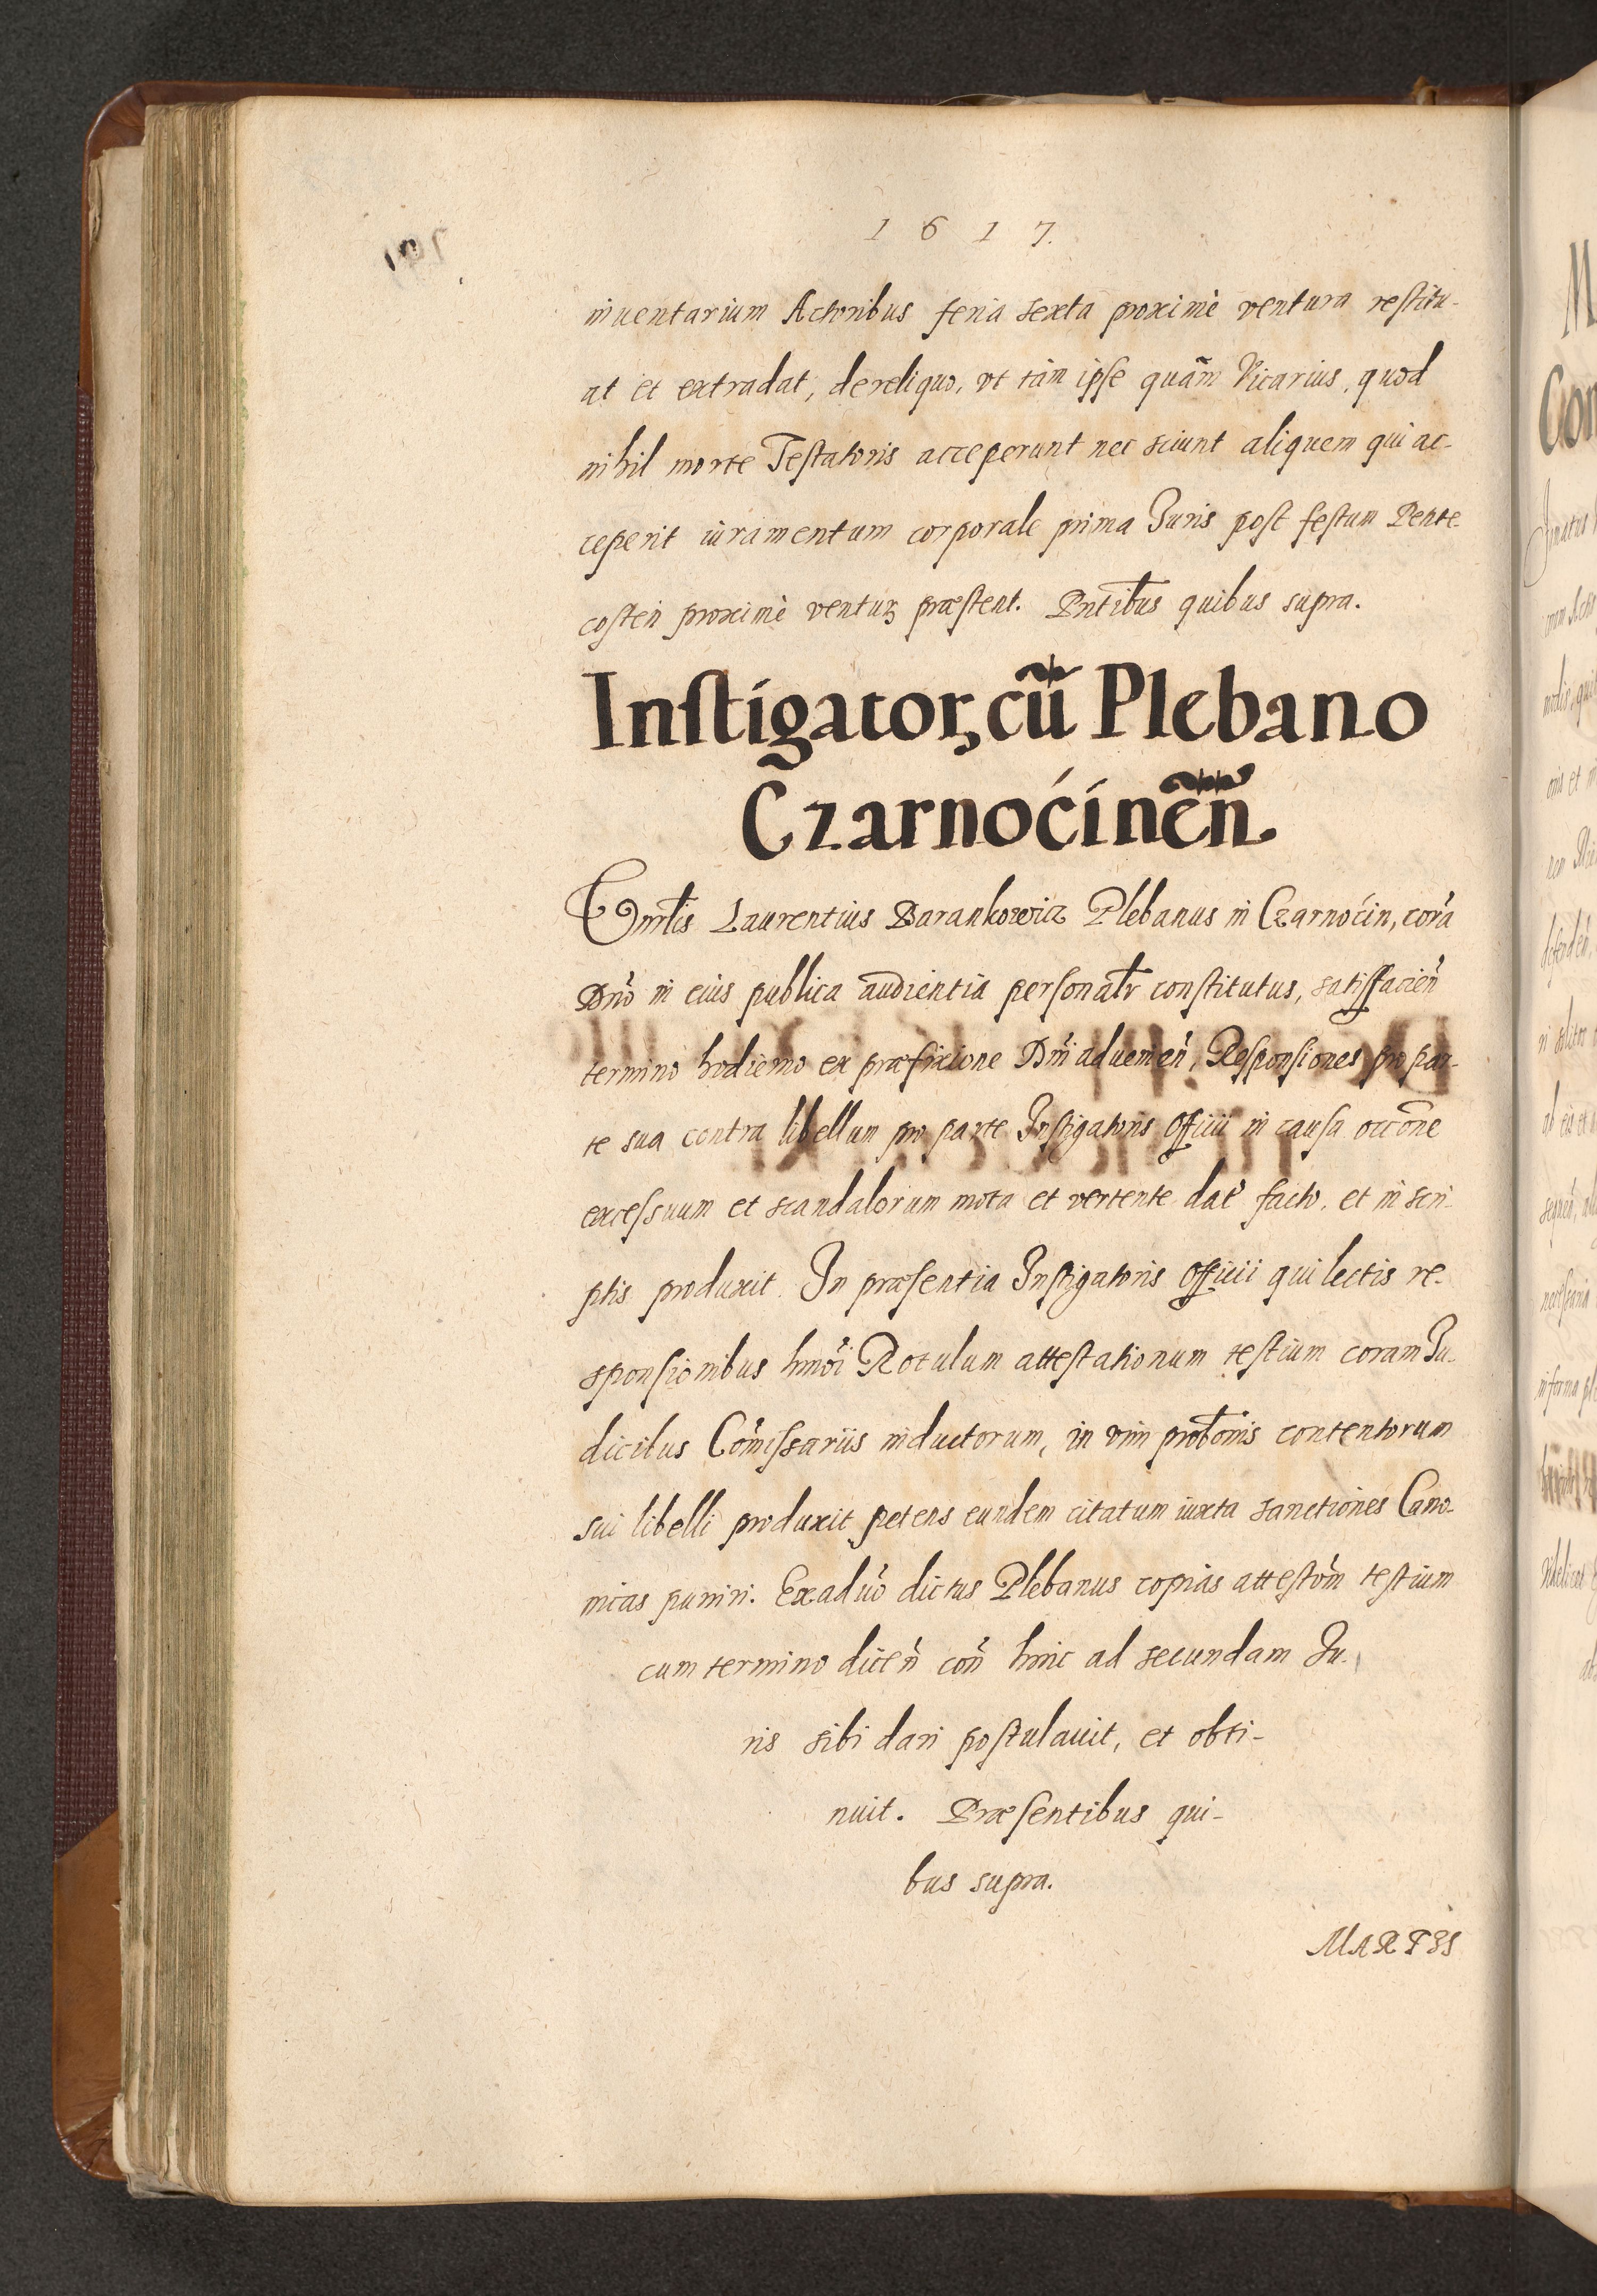 1617.
inuentarium Actoribus feria sexta proximè ventura restitu-
at et extradat, de reliquo, vt tàm ipse quàm Vicarius, quod
nihil morte Testatoris acceperunt nec sciunt aliquem qui ac-
ceperit iuramentum corporale prima Juris post festum Pente
costen proximè venturũ præstent. Pntibus quibus supra.
Instigator, cũ Plebano
Czarnocinẽñ
Laurentius Barankowicz Plebanus in Czarnocin, corã
Dño in eius publica audientia personalr constitutus, satisfacieñ
termino hodierno ex præfixione Dñi adueniẽñ, Responsiones pro par-
te sua contra libellum pro parte Instigatoris Officii in causa occõne
excessuum et scandalorum mota et vertente dat facto, et in scri-
ptis produxit. In præsentia Instigatoris Officii qui lectis re-
sponsionibus hmõi Rotulum attestationum testium coram Ju-
dicibus Cõmissariis inductorum, in vim probõnis contentorum
sui libelli produxit petens eundem citatum iuxta sanctiones Cano-
nicas puniri. Ex aduõ dictus Plebanus copias attestõm testium
cum termino diceñ coñ hinc ad secundam Ju-
ris sibi dari postulauit, et obti-
nuit. Præsentibus qui-
bus supra.
MARTIS